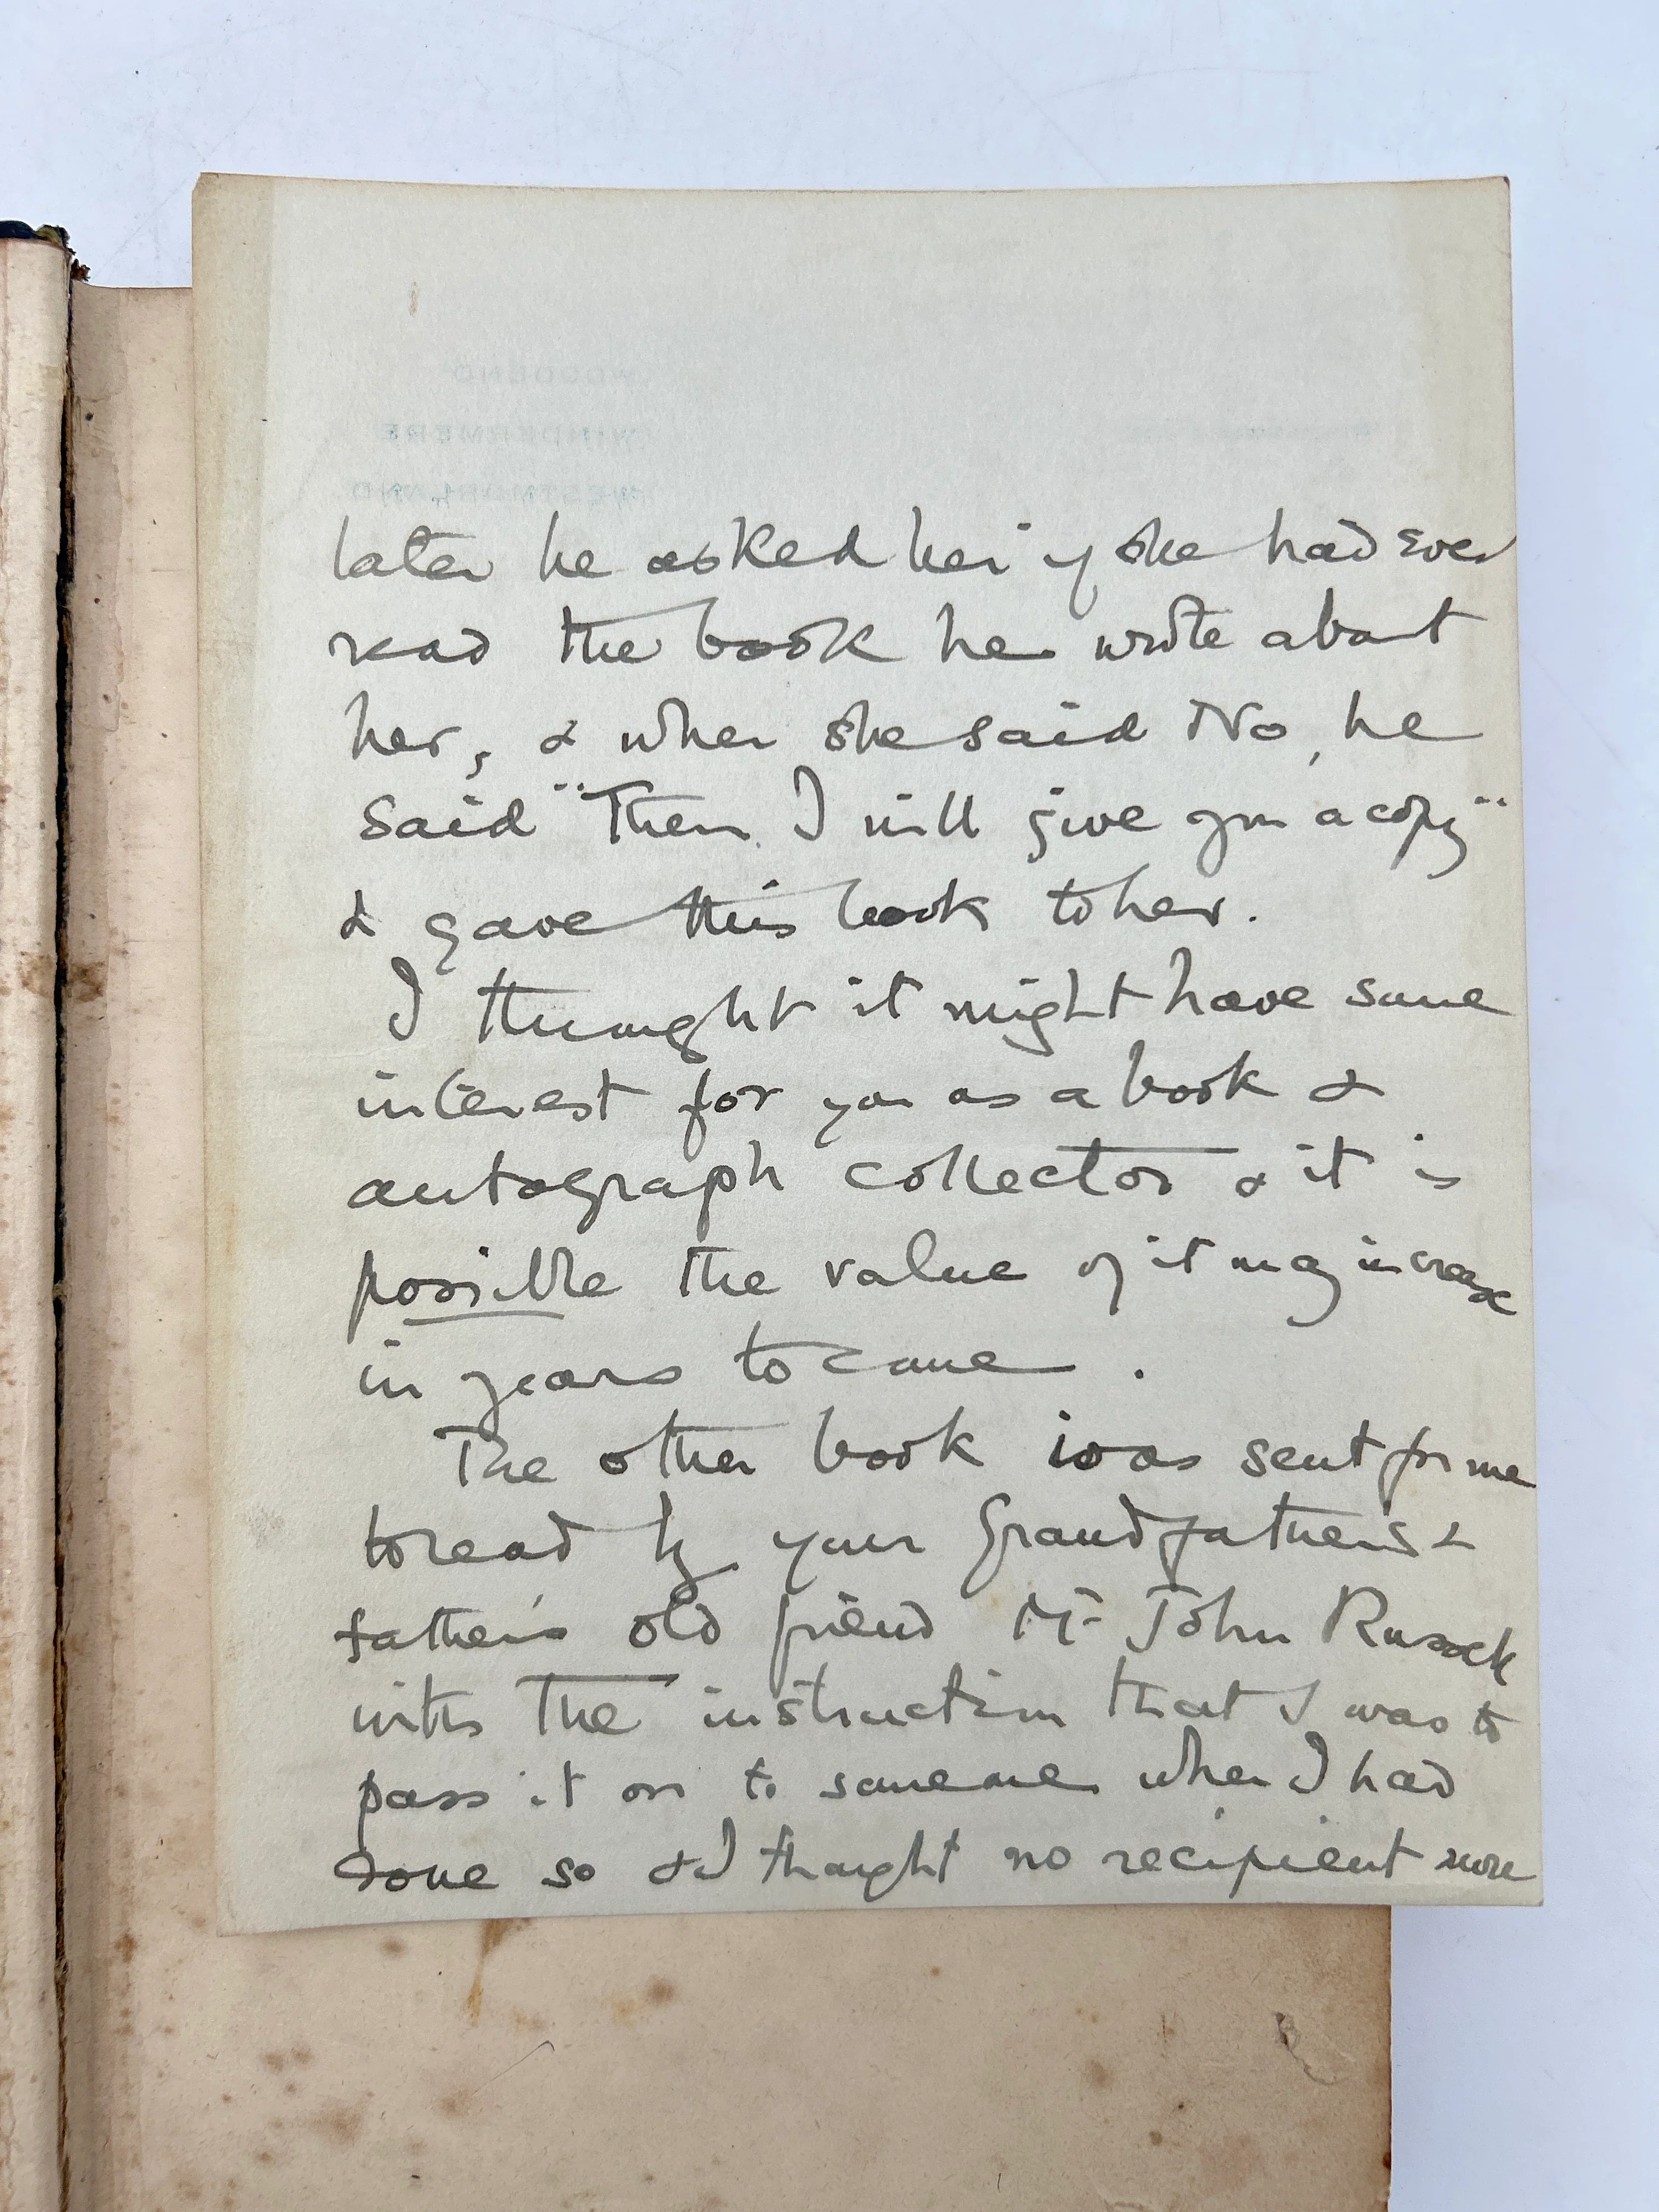 WOODEND
WINDERMERE
WESTMORLAND
later he asked her if she had ever
read the book he wrote about
her, & when she said No, he
said "Then I will give you a copy"
& gave this book to her.
I thought it might have some
interest for you as a book &
autograph collector & it is
possible the value of it may increase
in years to come.
The other book was sent for me
to read by your Grandfather's &
father's old friend Mr John
with the instruction that I was to
pass it on to someone when I had
done so & I thought no recipient more